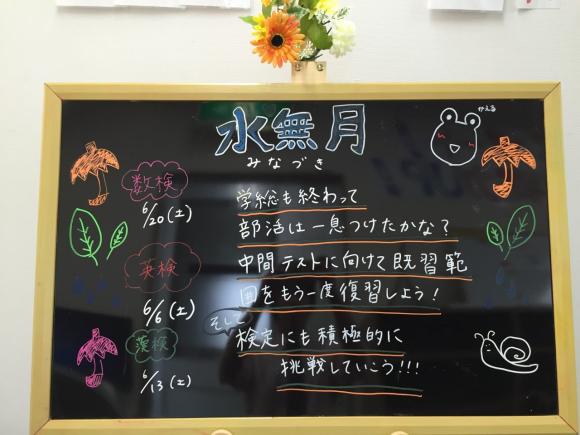 水無月
みなづき
かえる
数検
6/20(土)
英検
6/6(土)
漢検
6/13(土)
学総も終わって
部活は一息つけたかな?
中間テストに向けて既習範
囲をもう一度復習しよう!
そして
検定にも積極的に
挑戦していこう!!!